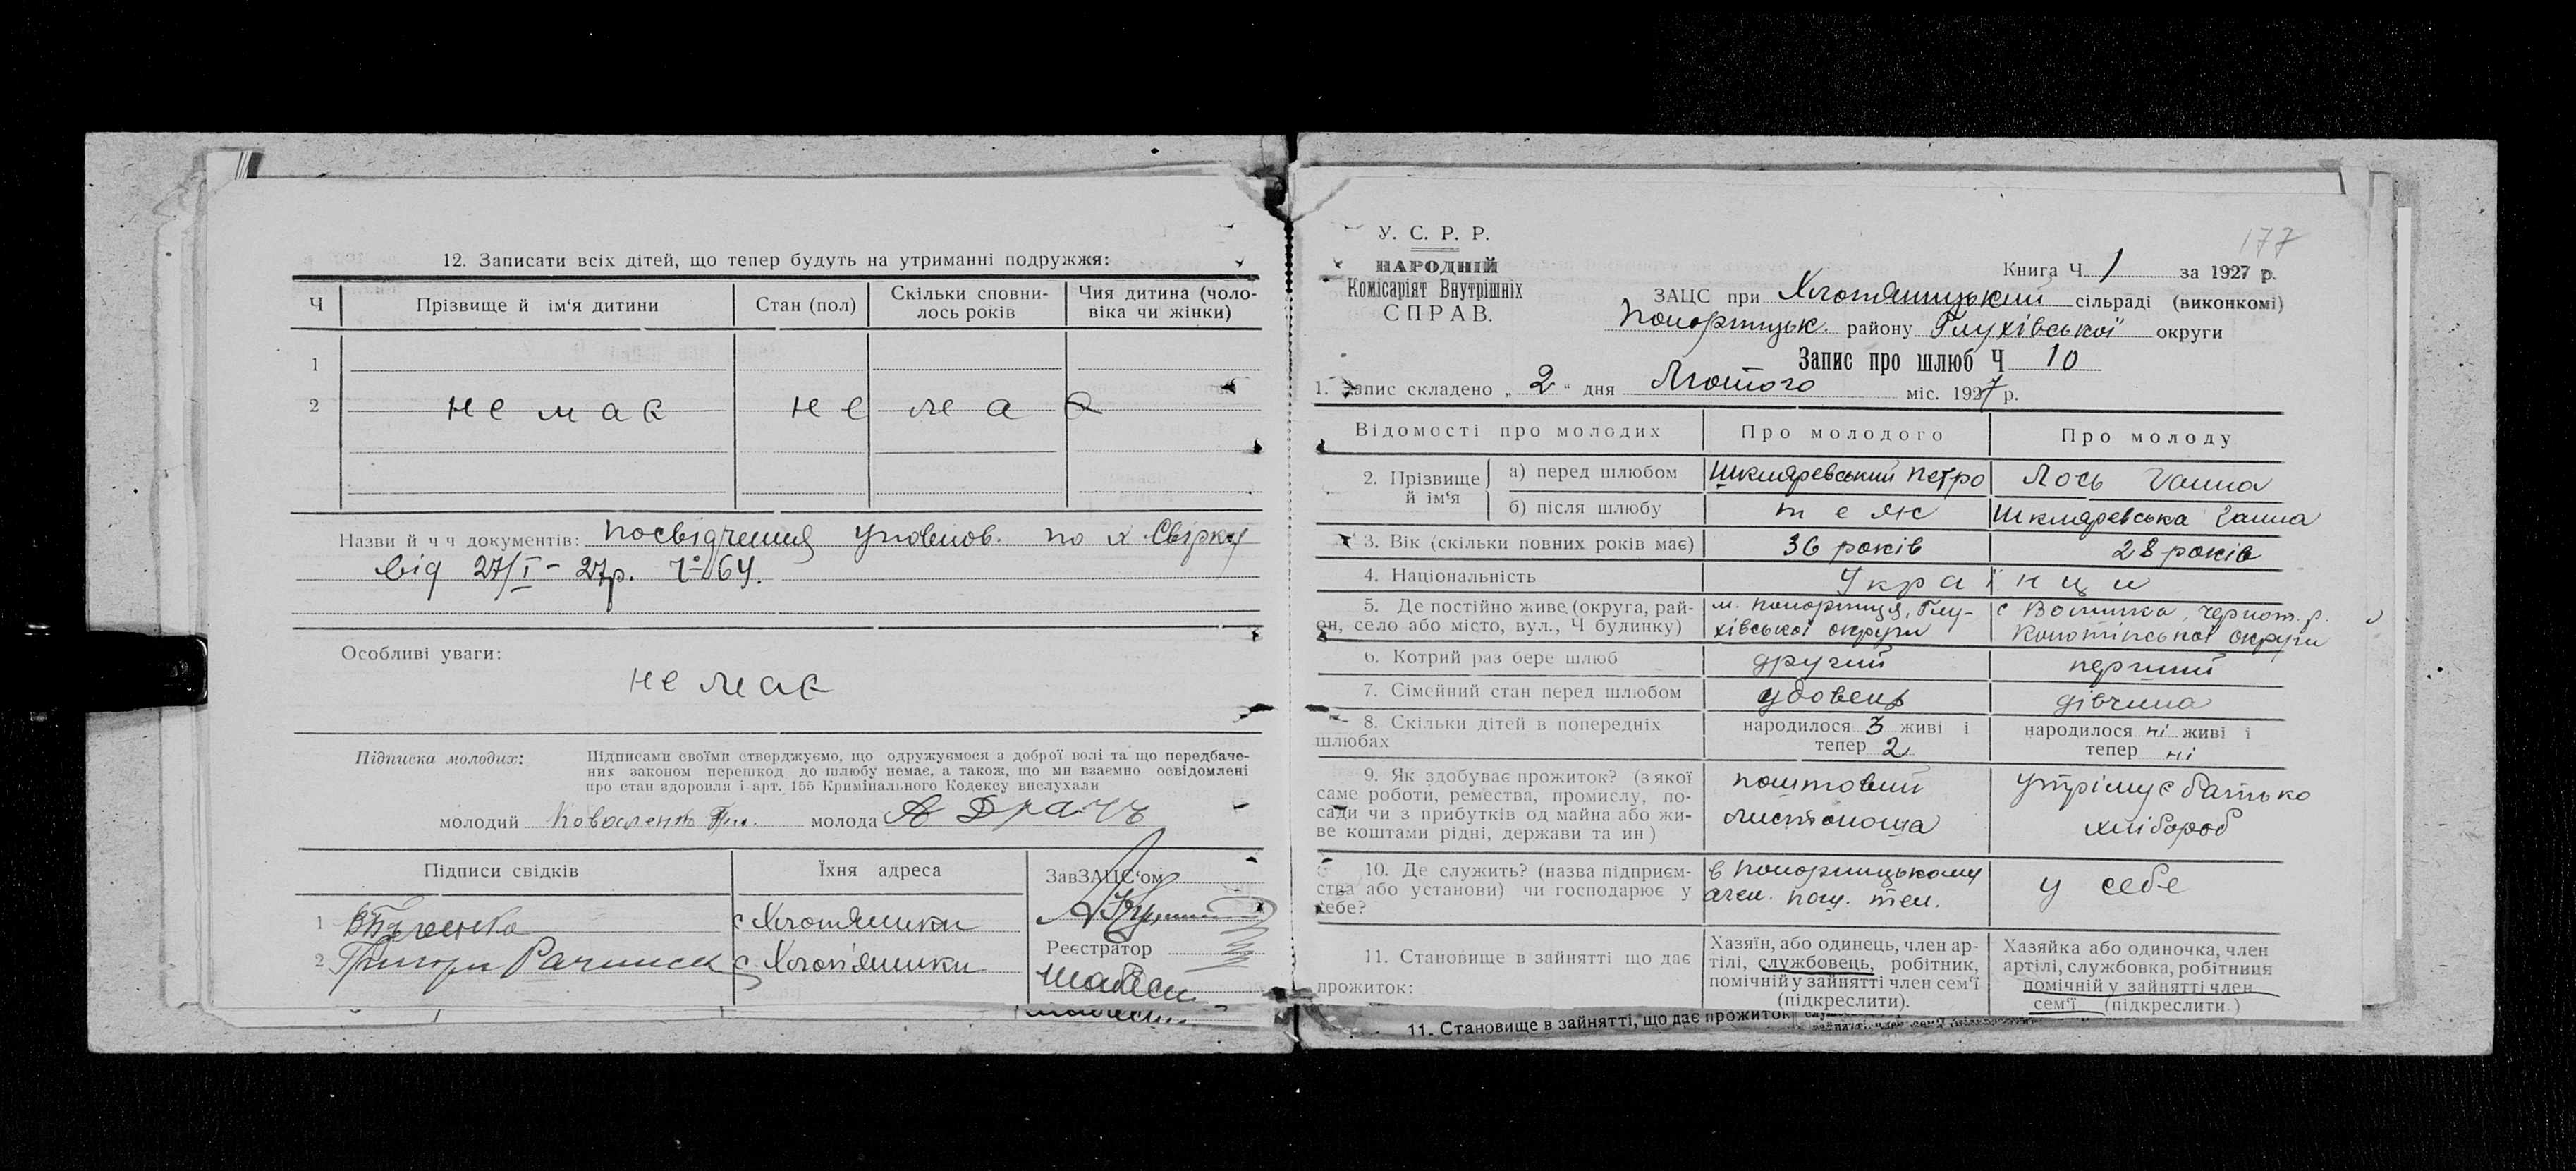 12. Записати всіх дітей, що тепер будуть на утриманні подружжя:
Ч Прізвище й ім‘я дитини Стан (пол) Скільки сповни- Чия дитина (чоло-
лось років віка чи жінки)
1
2 не має не ма є
Назви й ч ч документів: посвідчення уповнов. по х. Свірку
від 27/I - 27р. Ч 64.
Особливі уваги:
не має
Підписка молодих: Підписами своїми стверджуємо, що одружуємося з доброї волі та що передбаче-
них законом перешкод до шлюбу немає, а також, що ми взаємно освідомлені
про стан здоровля і арт. 155 Кримінального Кодексу вислухали
молодий Коваленко молода А Драчъ
Підписи свідків Їхня адреса ЗавЗАЦС‘ом
1 с Хлопяники
Реєстратор
2 Григори Рачинск с Хлоп'яники
177
У. С. Р. Р.
НАРОДНІЙ
Комісаріят Внутрішніх
СПРАВ.
Книга Ч 1 за 1927 р.
ЗАЦС при Хлопяницький сільраді (виконкомі)
Понорницьк. району Глухівської округи
Запис про шлюб Ч 10
1. Запис складено „ 2 “ дня Лютого міс. 1927 р.
Відомості про молодих Про молодого Про молоду
2. Прізвище й ім‘я а) перед шлюбом Шкляревський Петро Лось Ганна
б) після шлюбу т е як Шкляревська Ганна
3. Вік (скільки повних років має) 36 років 28 років
4. Національність Українци
5. Де постійно живе (округа, рай- м. Понорниця, Глу- с Вошинка, чернот. р.
он, село або місто, вул., Ч будинку) хівської округи Конотіпської округи
6. Котрий раз бере шлюб другий перший
7. Сімейний стан перед шлюбом удовець дівчина
8. Скільки дітей в попередніх народилося 3 живі і народилося ні живі і
шлюбах тепер 2 тепер ні
9. Як здобуває прожиток? (з якої поштовий утрімує батько
саме роботи, ремества, промислу, по- листоноша хлібороб
сади чи з прибутків од майна або жи-
ве коштами рідні, держави та ин)
10. Де служить? (назва підприєм- в Понорницькому у себе
ства або установи) чи господарює у аген. пош. тел.
себе?
11. Становище в зайнятті що дає
прожиток:
Хазяїн, або одинець, член ар-
тілі, службовець, робітник,
помічній у зайнятті член сем‘ї
(підкреслити).
Хазяйка або одиночка, член
артілі, службовка, робітниця
помічній у зайнятті член
сем‘ї (підкреслити.)
11. Становище в зайнятті, що дає прожиток